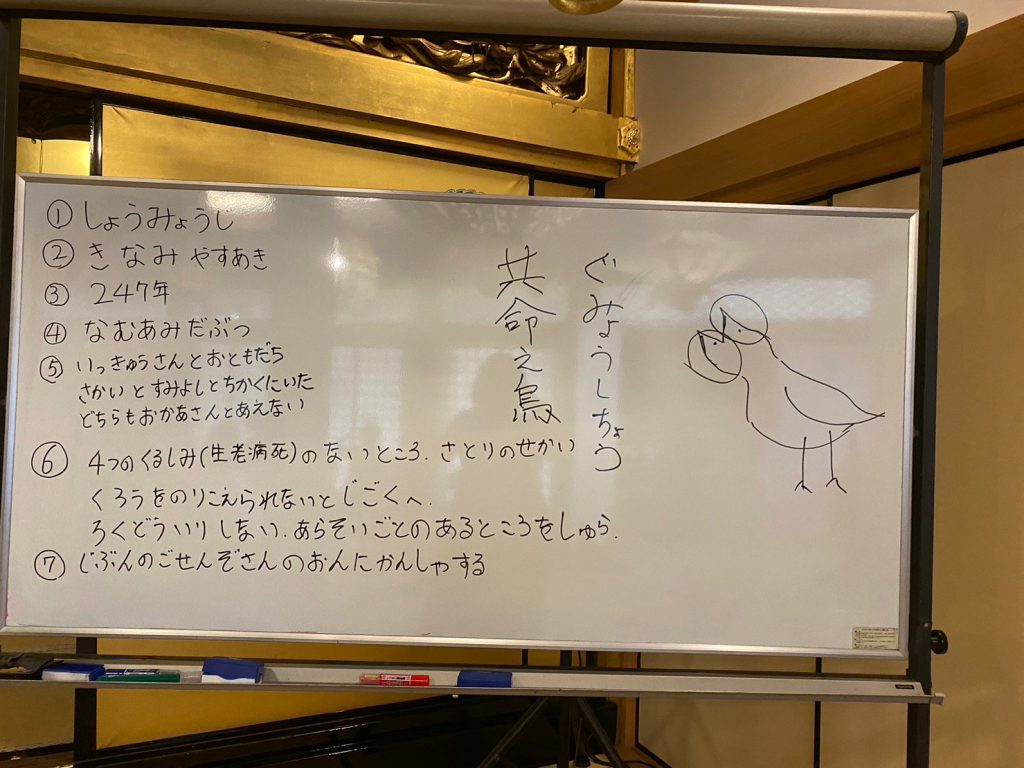 ① しょうみょうじ
② きなみ やすあき
③ 247年
④ なむあみだぶつ
⑤ いっきゅうさんとおともだち
さかいとすみよしとちかくにいた
どちらもおかあさんとあえない
⑥ 4つのくるしみ(生老病死)のないところ. さとりのせかい
くろうをのりこえられないとじごくへ.
ろくどういりしない. あらそいごとのあるところをしゅら.
⑦ じぶんのごせんぞさんのおんにかんしゃする
ぐみょうしちょう
共命え鳥